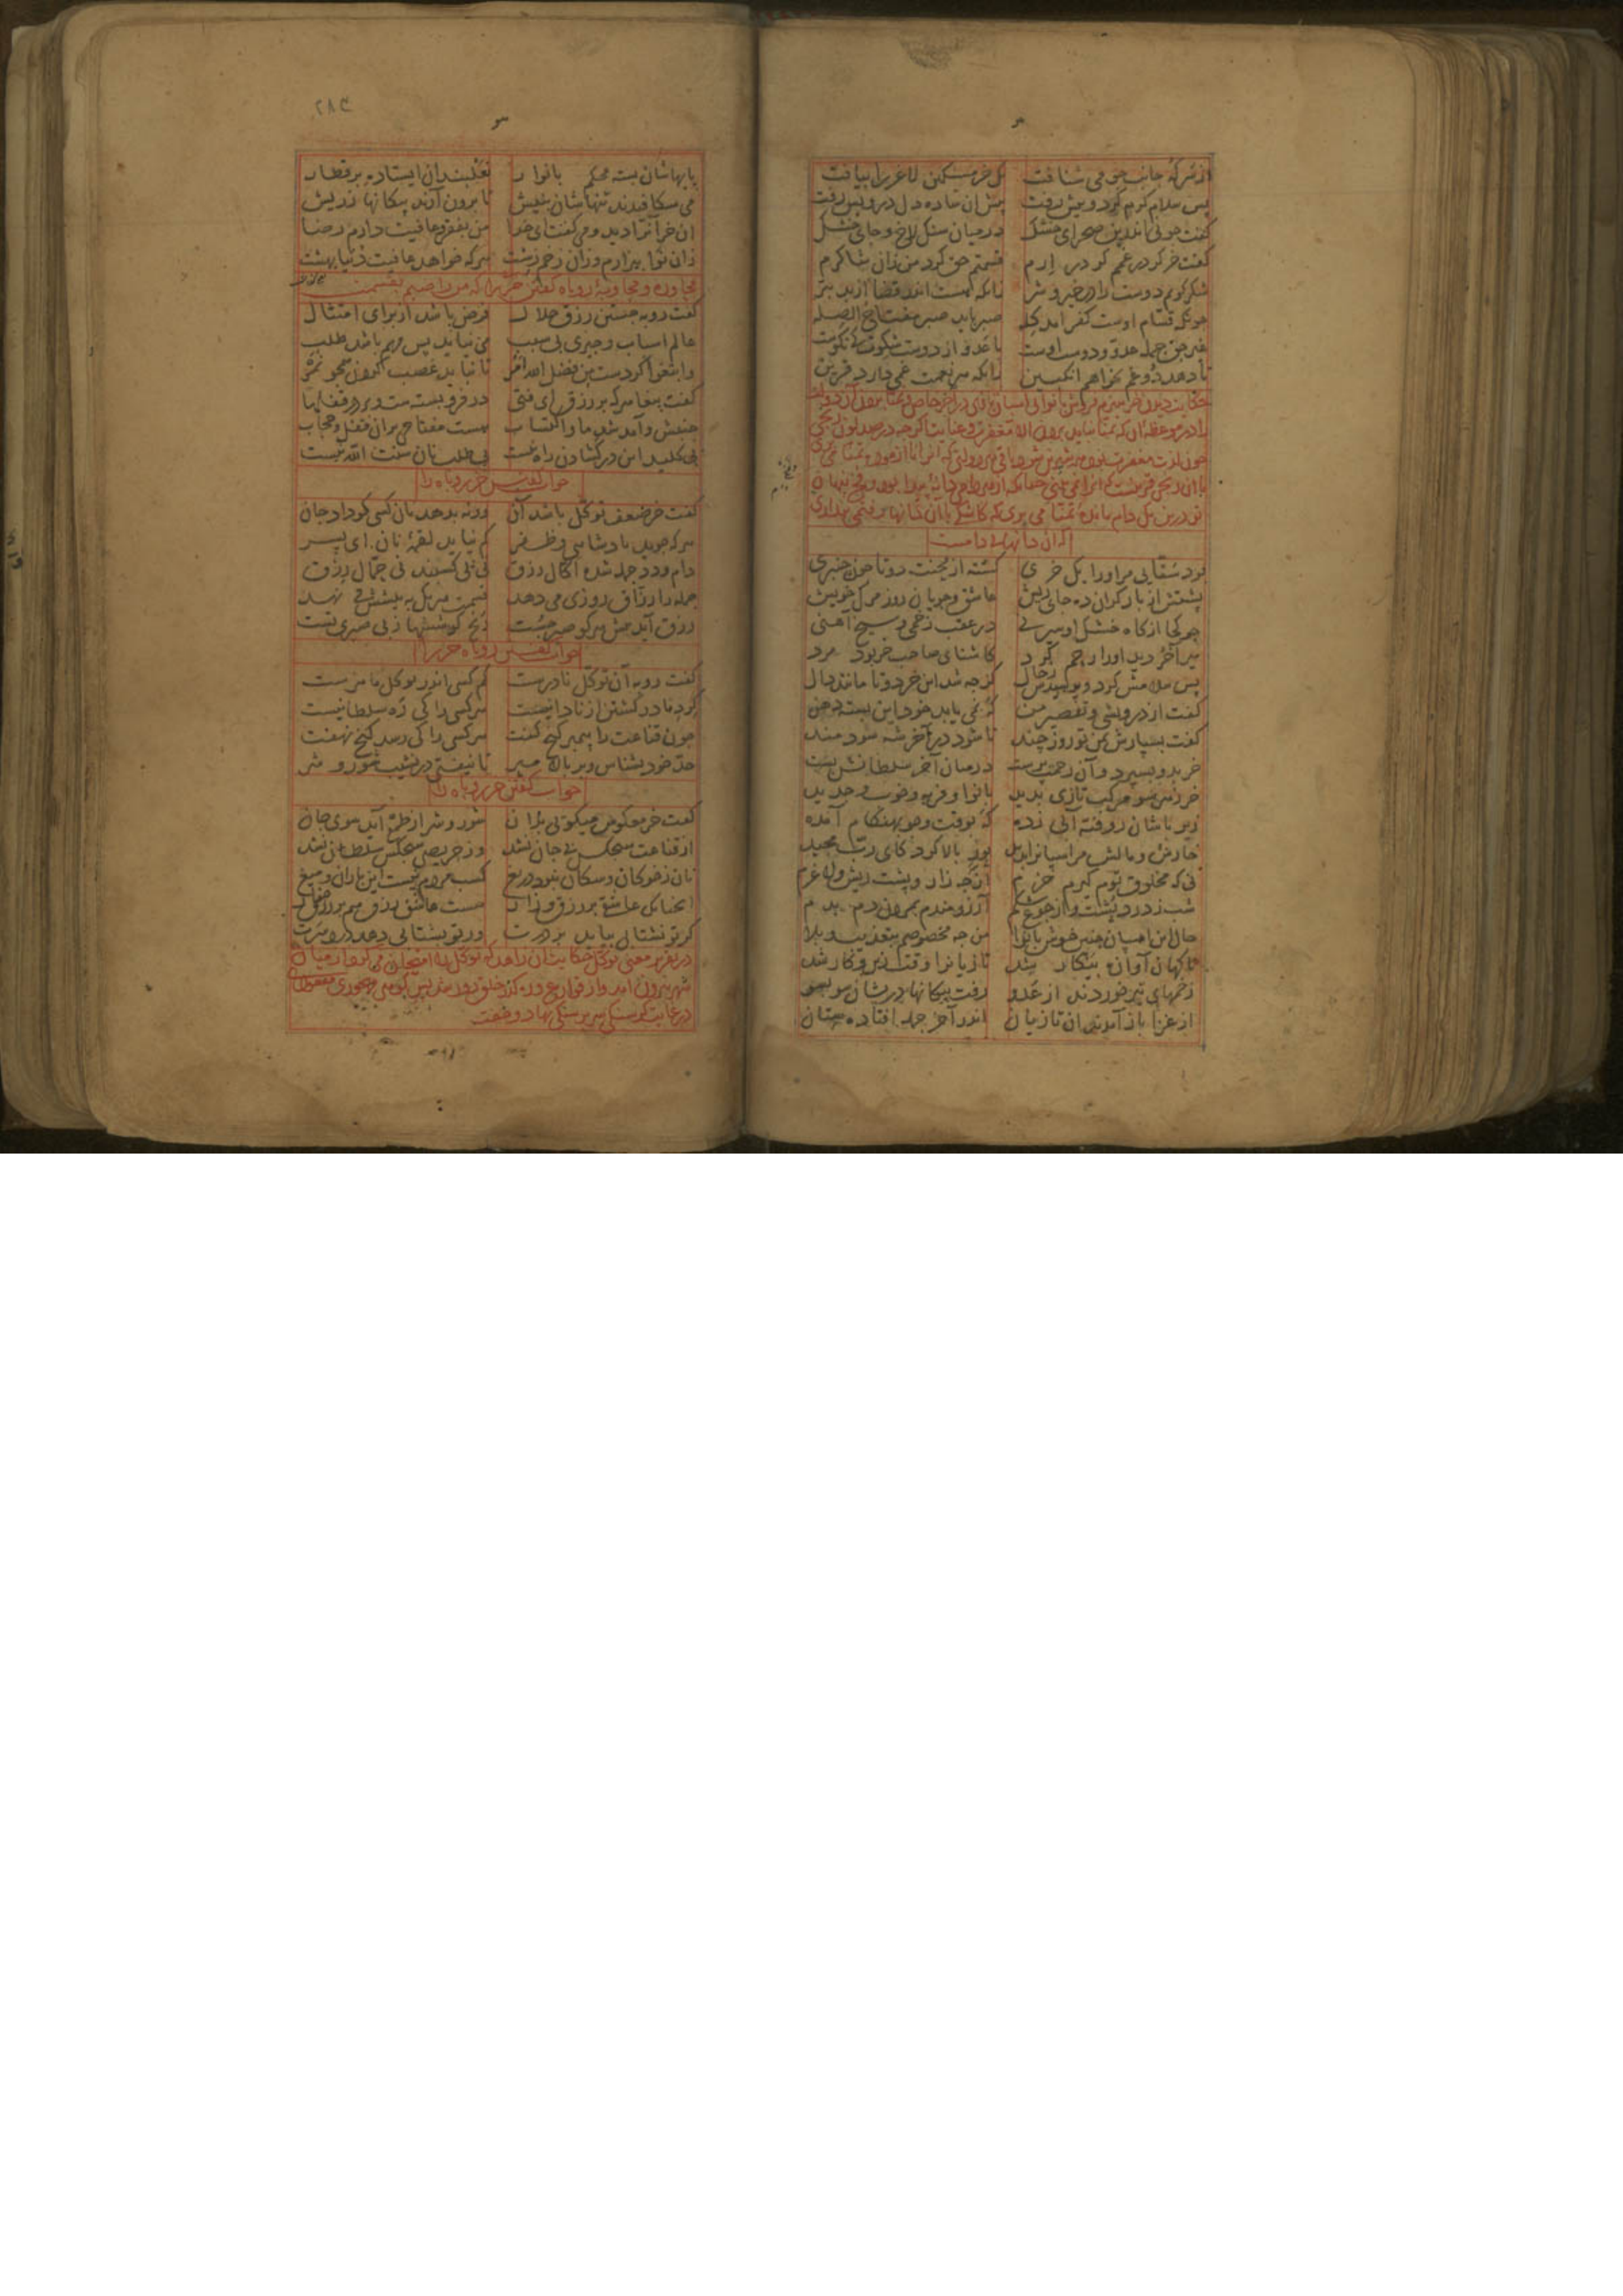 از سر که جانب جو می شتافت یک خر مسکین لاغر را بیافت
پس سلام گرم کرد و پیش رفت پیش آن ساده دل درویش رفت
گفت چونی اندرین صحرای خشک در میان سنگ لاخ و جای خشک
گفت خر گر در غمم گر در ارم قسمتم حق کرد من زان شاکرم
شکر گویم دوست را در خیر و شر زانکه هست اندر قضا از بد بتر
چونکه قسام اوست کفر آمد گله صبر باید صبر مفتاح الصله
غیر حق جمله عدو و دوست اوست با عدو از دوست شکوت کی نکوست
تا دهد دوغم نخواهم انگبین زانکه هر نعمت غمی دارد قرین
حکایت دیدن خر هیزم فروش با نوایی اسبان تازی در آخر خاص و تمنا بردن آن دولت
را در موعظه آن که تمنا نباید بردن الا مغفرت و عنایت اگر چه در صد لون رنجی
چون لذت مغفرت بود همه شیرین شود باقی هر دولتی که آنرا ناآزموده تمنا می بری
با آن رنجی قرینست که آنرا نمی بینی چنانکه از هر دامی دانه پیدا بود و فخ پنهان
تو درین یک دام مانده تمنا می بری که کاشکی با آن دانها رفتمی پنداری
که آن دانها بی دامست
بود سقایی مر او را یک خری گشته از محنت دوتا چون چنبری
پشتش از بار گران ده جای ریش عاشق و جویان روز مرگ خویش
جو کجا از کاه خشک او سیر نی در عقب زخمی و سیخ آهنی
میر آخر دید او را رحم کرد کآشنای صاحب خر بود مرد
پس سلامش کرد و پرسیدش ز حال کز چه شد این خر دوتا مانند دال
گفت از درویشی و تقصیر من که نمی یابد خود این بسته دهن
گفت بسپارش بمن تو روز چند تا شود در آخر شه زورمند
خر بدو بسپرد و آن رحمت پرست در میان آخر سلطانش بست
خر ز هر سو مرکب تازی بدید با نوا و فربه و خوب و جدید
زیر پاشان روفته آبی زده که بوقت و جو بهنگام آمده
خارش و مالش مر اسپانرا بدید پوز بالا کرد کای رب مجید
نی که مخلوق توم گیرم خرم از چه زار و پشت ریش و لاغرم
شب ز درد پشت و از جوع شکم آرزومندم بمردن دم بدم
حال این اسپان چنین خوش با نوا من چه مخصوصم بتعذیب و بلا
ناگهان آوازه پیکار شد تازیانرا وقت زین و کار شد
زخمهای تیر خوردند از عدو رفت پیکانها دریشان سو بسو
از غزا باز آمدند آن تازیان اندر آخر جمله افتاده ستان
۲۸۳
پایهاشان بسته محکم با نوار نعلبندان ایستاده بر قطار
می شکافیدند تنهاشان بنیش تا برون آرند پیکانها ز ریش
آن خر آنرا دید و می گفت ای خدا من بفقر و عافیت دارم رضا
زان نوا بیزارم و زان زخم زشت هر که خواهد عافیت دنیا بهشت
گفت روبه جستن رزق حلال فرض باشد از برای امتثال
عالم اسباب و چیزی بی سبب می نیاید پس مهم باشد طلب
وابتغوا کردست من فضل الله امر تا نباید غصب کردن همچو نمر
گفت پیغامبر که بر رزق ای فتی در فرو بسته ست و بر در قفلها
جنبش و آمد شد ما و اکتساب هست مفتاحی بر آن قفل و حجاب
بی کلید این در گشادن راه نیست بی طلب نان سنت الله نیست
جواب گفتن خر روباه را
گفت خر ضعف توکل باشد آن ورنه بدهد نان کسی کو داد جان
هر که جوید پادشاهی و ظفر کم نیاید لقمه نان ای پسر
دام و دد جمله شده اکال رزق نی پی کسبند نی حمال رزق
جمله را رزاق روزی می دهد قسمت هر یک به پیشش می نهد
رزق آید پیش هر کو صبر جست رنج کوششها ز بی صبری تست
جواب گفتن روباه خر را
گفت روبه آن توکل نادرست کم کسی اندر توکل ماهرست
گرد نادر گشتن از نادانیست هر کسی را کی ره سلطانیست
چون قناعت را پیمبر گنج گفت هر کسی را کی رسد گنج نهفت
حد خود بشناس و بر بالا مپر تا نیفتی در نشیب شور و شر
جواب گفتن خر روباه را
گفت خر معکوس میگویی بدان شور و شر از طمع آید سوی جان
از قناعت هیچکس بی جان نشد وز حریصی هیچکس سلطان نشد
نان ز خوکان و سگان نبود دریغ کسب مردم نیست این باران و میغ
آنچنانک عاشقی بر رزق و زار هست عاشق رزق هم بر رزق خوار
گر تو نشتابی بیاید بر درت ور تو بشتابی دهد درد سرت
در تقریر معنی توکل حکایت آن زاهد که توکل را امتحان می کرد از میان
در غایت گرسنگی سر بر سنگی نهاد و خفت